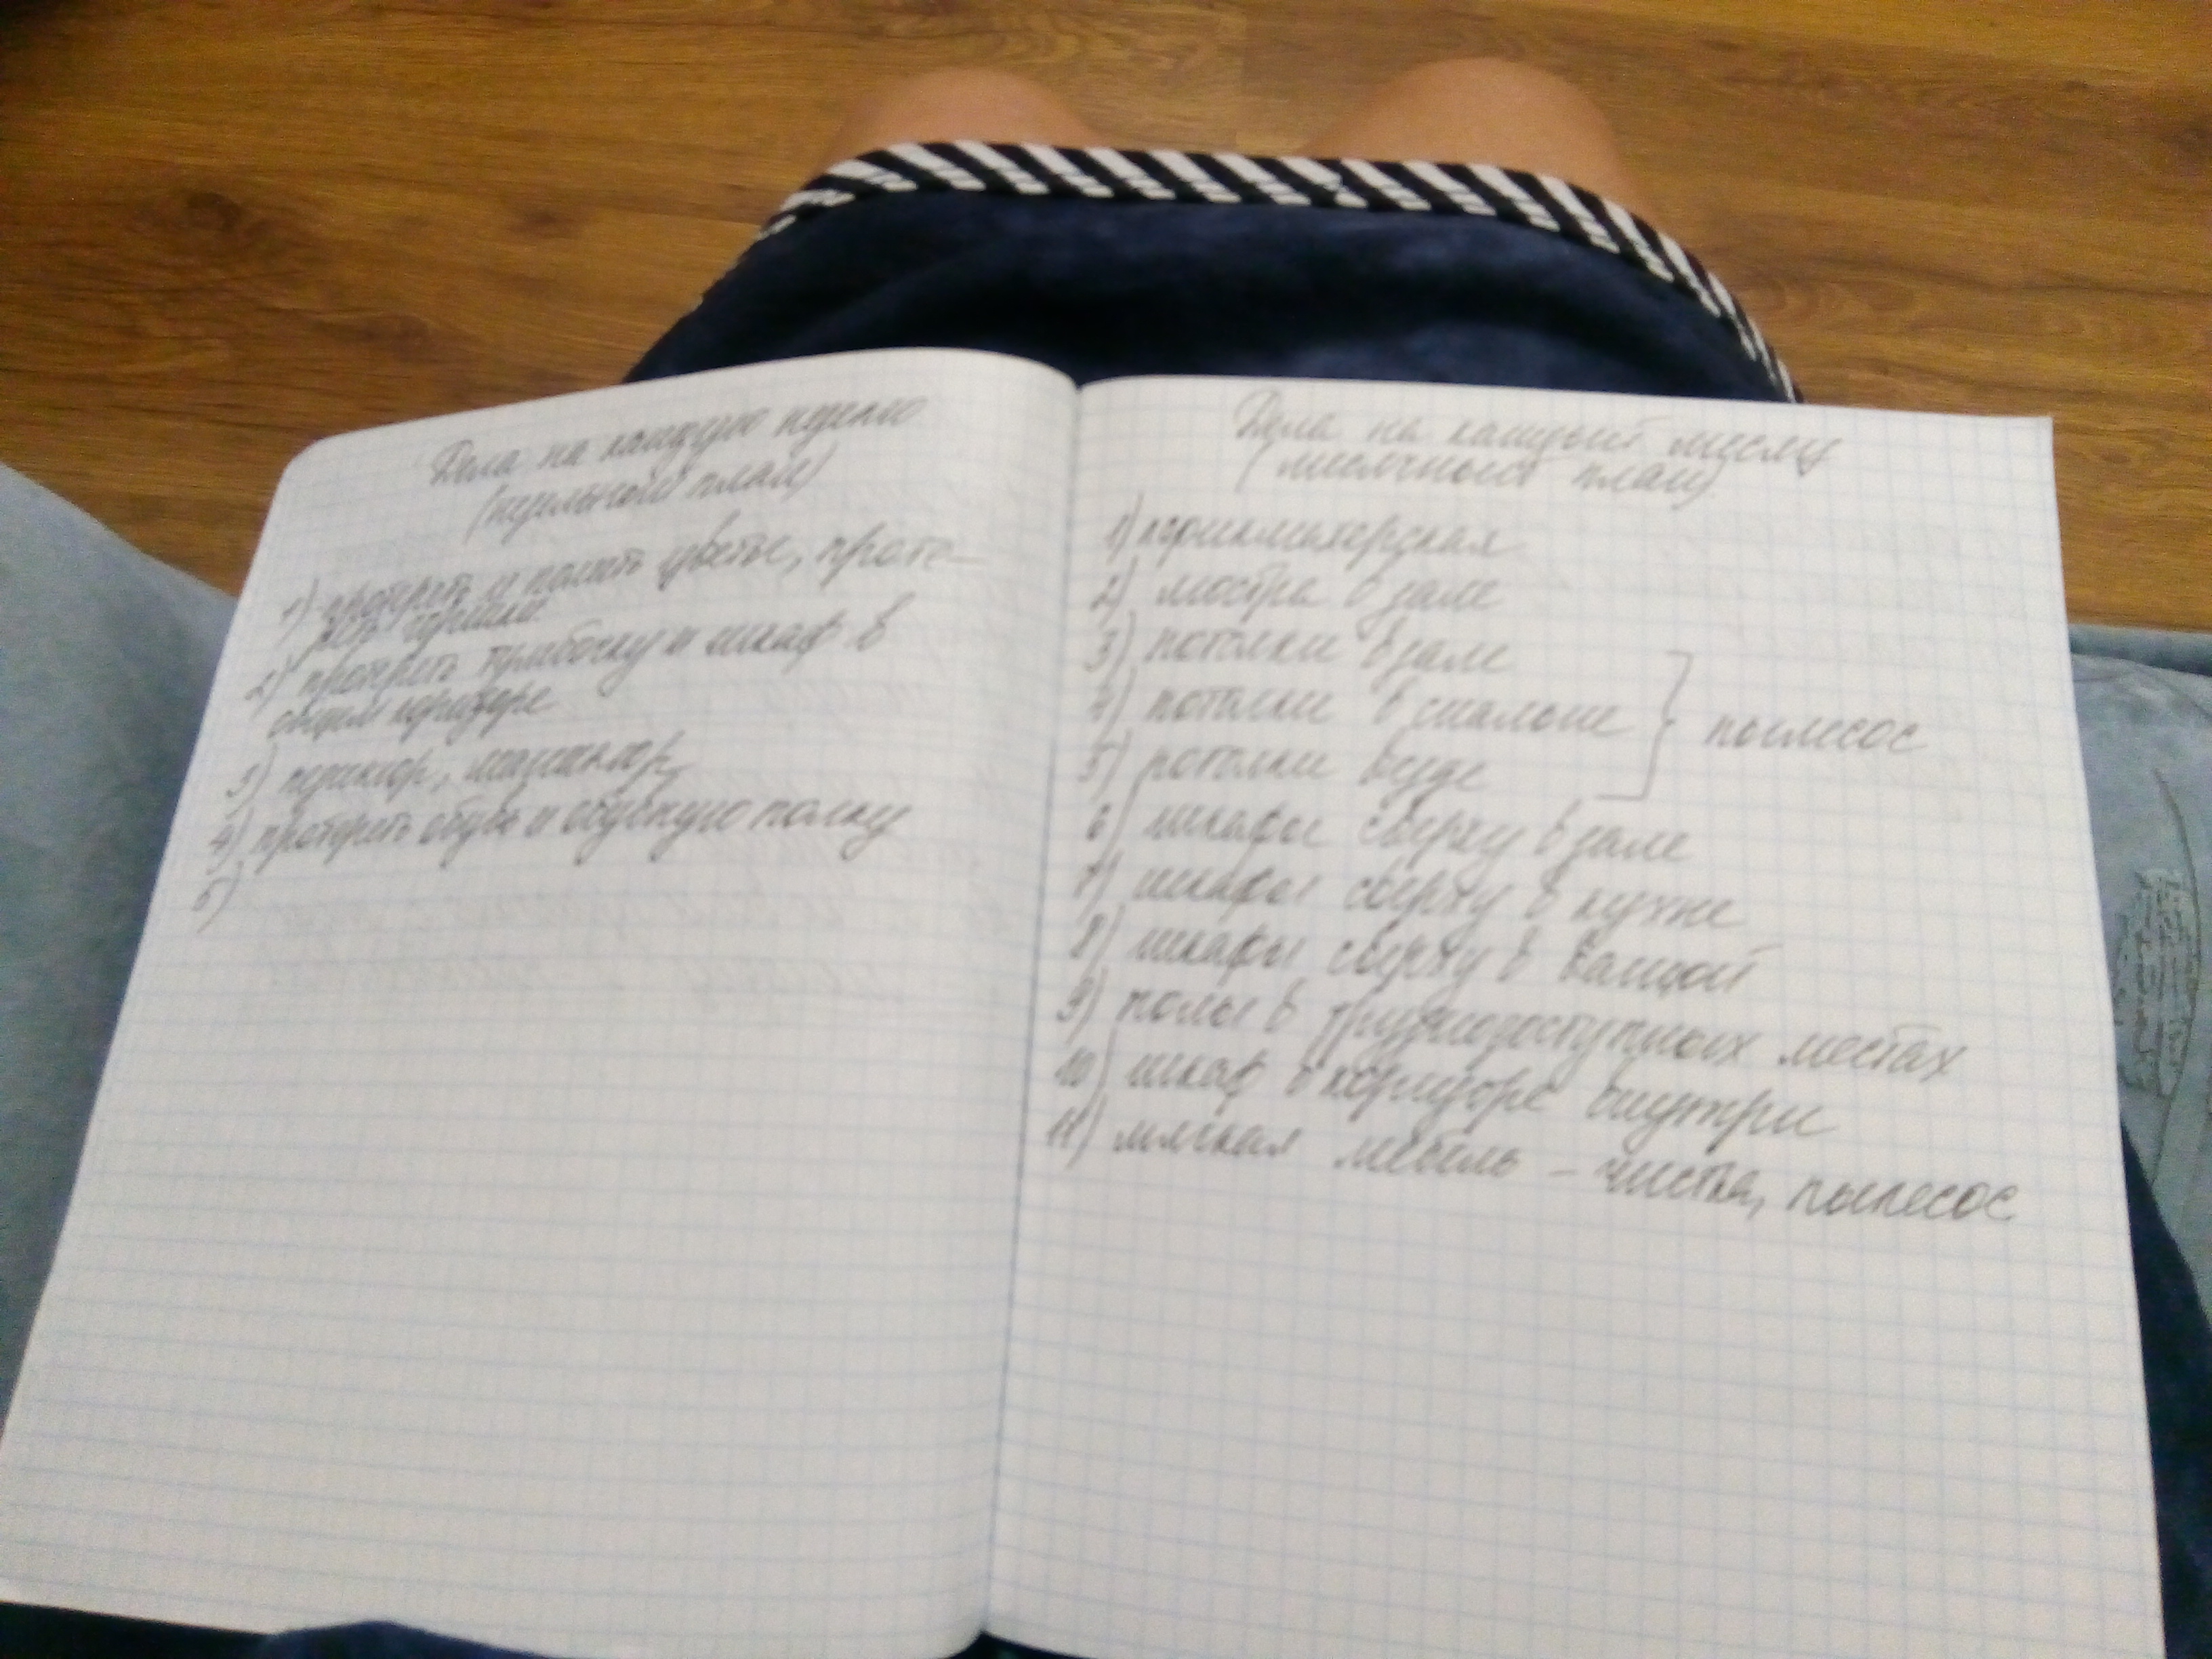 Дела на каждую неделю
(недельный план)
1) протереть и полить цветы, проте-
реть горшки
2) протереть тумбочку и шкаф в
общем коридоре
3) педикюр, маникюр
4) протереть обувь и обувную полку
5)
Дела на каждый месяц
(месячный план)
1) парикмахерская
2) люстра в зале
3) потолки в зале
4) потолки в спальне
5) потолки везде
пылесос
6) шкафы сверху в зале
7) шкафы сверху в кухне
8) шкафы сверху в ванной
9) полы в труднодоступных местах
10) шкаф в коридоре внутри
11) мягкая мебель - чистка, пылесос